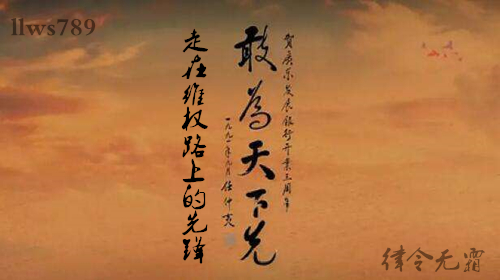 llws789
贺广东发展银行开业三周年
敢为天下先
一九九一年九月 任仲夷
走在维权路上的先锋
律令无霜